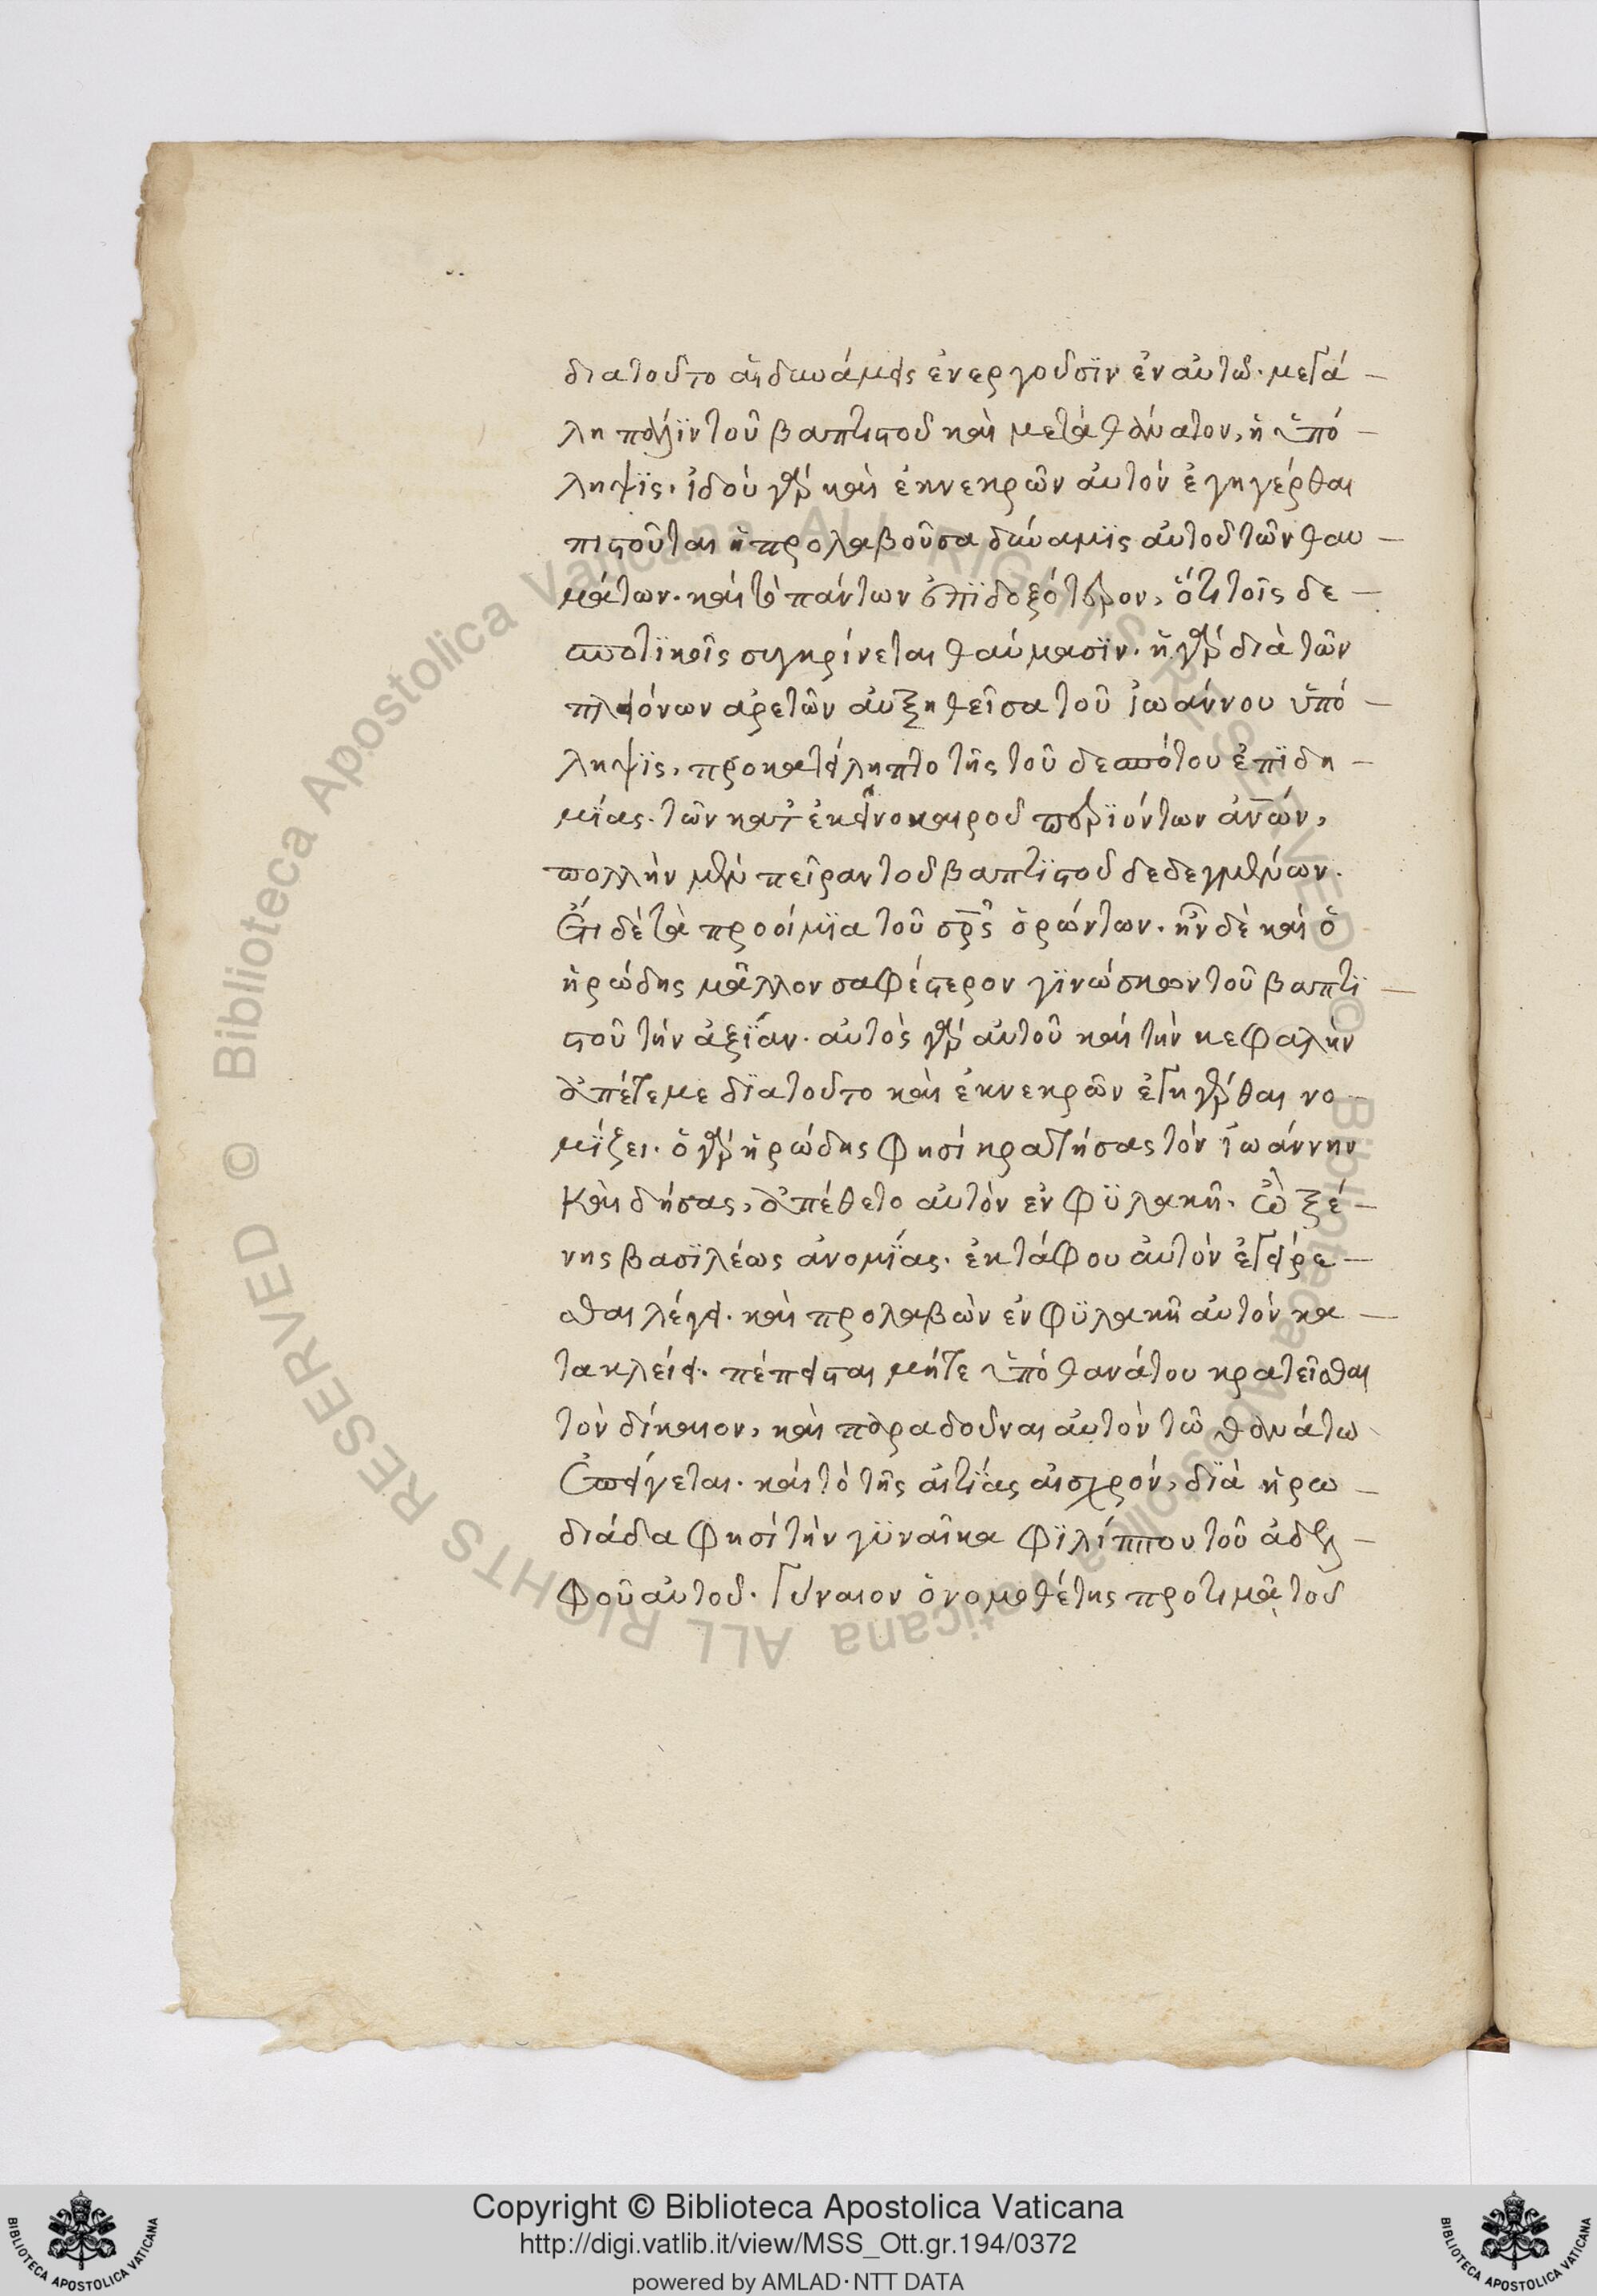 διατοῦτο αἱ δυνάμεις ἐνεργοῦσϊν ἐν αὐτῶ· μεγά
λη πάλϊν τοῦ βαπτιστοῦ καὶ μετὰ θάνατον, ἡ ὑπό
ληψϊς· ἰδού γὰρ καὶ ἐκνεκρῶν ἀυτόν ἐγηγέρθαι
πιστοῦται ἡ προλαβοῦσα δύναμϊς αὐτοῦ τῶν θαυ
μάτων· καὶ τὸ πάντων ἐπϊδοξότερον, ὅτι τοῖς δε
σποτϊκοῖς συγκρίνεται θαύμασϊν· ἡ γὰρ διὰ τῶν
πλειόνων ἀρετῶν ἀυξηθεῖσα τοῦ ἰωάννου ὑπό
ληψϊς, προκατείληπτο τῆς τοῦ δεσπότου ἐπϊδη
μϊας· τῶν κατ ἐκεῖνο καιροῦ περϊιόντων ἀνῶν,
πολλὴν μὲν πεῖραν τοῦ βαπτϊστοῦ δεδεγμένων·
Ἔτι δέ τὰ προοίμϊα τοῦ σρς ὁρώντων· ἦν δὲ καὶ ὁ
ἡρώδης μᾶλλον σαφέστερον γϊνώσκων τοῦ βαπτϊ
στοῦ τὴν ἀξϊαν· αὐτὸς γὰρ αὐτοῦ καὶ τὴν κεφαλὴν
ἀπέτεμε δϊατοῦτο καὶ ἐκνεκρῶν ἐγηγέρθαι νο
μϊζει· ὁ γὰρ ἡρώδης φησί κρατήσας τόν ἰωάννην
καὶ δήσας, ἀπέθετο αὐτὸν ἐν φϋλακῆ· Ὢ ξέ
νης βασϊλέως ἀνομϊας· ἐκτάφου ἀυτόν ἐγείρε
σθαι λέγει· καὶ προλαβὼν ἐν φϋλακῆ ἀυτόν κα
τακλείει· πέπεισται μήτε ὑπό θανάτου κρατεῖσθαι
τὸν δίκαιον, καὶ παραδοῦναι αὐτόν τῶ θανάτω
Ἐπείγεται· καὶ τὸ τῆς αἰτϊας αἰσχρόν, δϊὰ ἡρω
διάδα φησί τὴν γϋναῖκα φϊλίππου τοῦ ἀδελ
φοῦ αὐτοῦ· Γύναιον ὁ νομοθέτης προτιμᾶ τοῦ
Copyright © Biblioteca Apostolica Vaticana
http://digi.vatlib.it/view/MSS_Ott.gr.194/0372
powered by AMLAD·NTT DATA
BIBLIOTECA APOSTOLICA VATICANA
BIBLIOTECA APOSTOLICA VATICANA
Biblioteca Apostolica Vaticana ALL RIGHTS RESERVED ©
Biblioteca Apostolica Vaticana ALL RIGHTS RESERVED ©